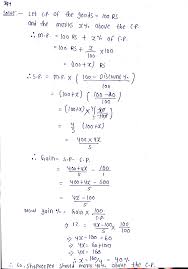 Solution:- Let C.P of the goods = 100 RS
and the marks x% above the C.P.
∴ M.P. = 100 RS + x% of C.P.
= 100 RS + x/100 × 100
= (100 + x) RS
∴ S.P. = M.P. × (100 - DISCOUNT% / 100)
= (100+x) (100-20 / 100)
= (100+x)
= 4/5 (100+x)
= 400+4x / 5
∴ Gain = S.P. - C.P.
= 400+4x / 5 - 100
= 400+4x-500 / 5
= 4x-100 / 5
Now gain% = Gain × 100 / C.P.
⇒ 12 = 4x-100 / 5 × 100/100
⇒ 4x-100 = 60
⇒ 4x = 60+100
⇒ 4x = 160
⇒ x = 160/4 = 40%
∴ So, Shopkeeper should mark 40% above the C.P.